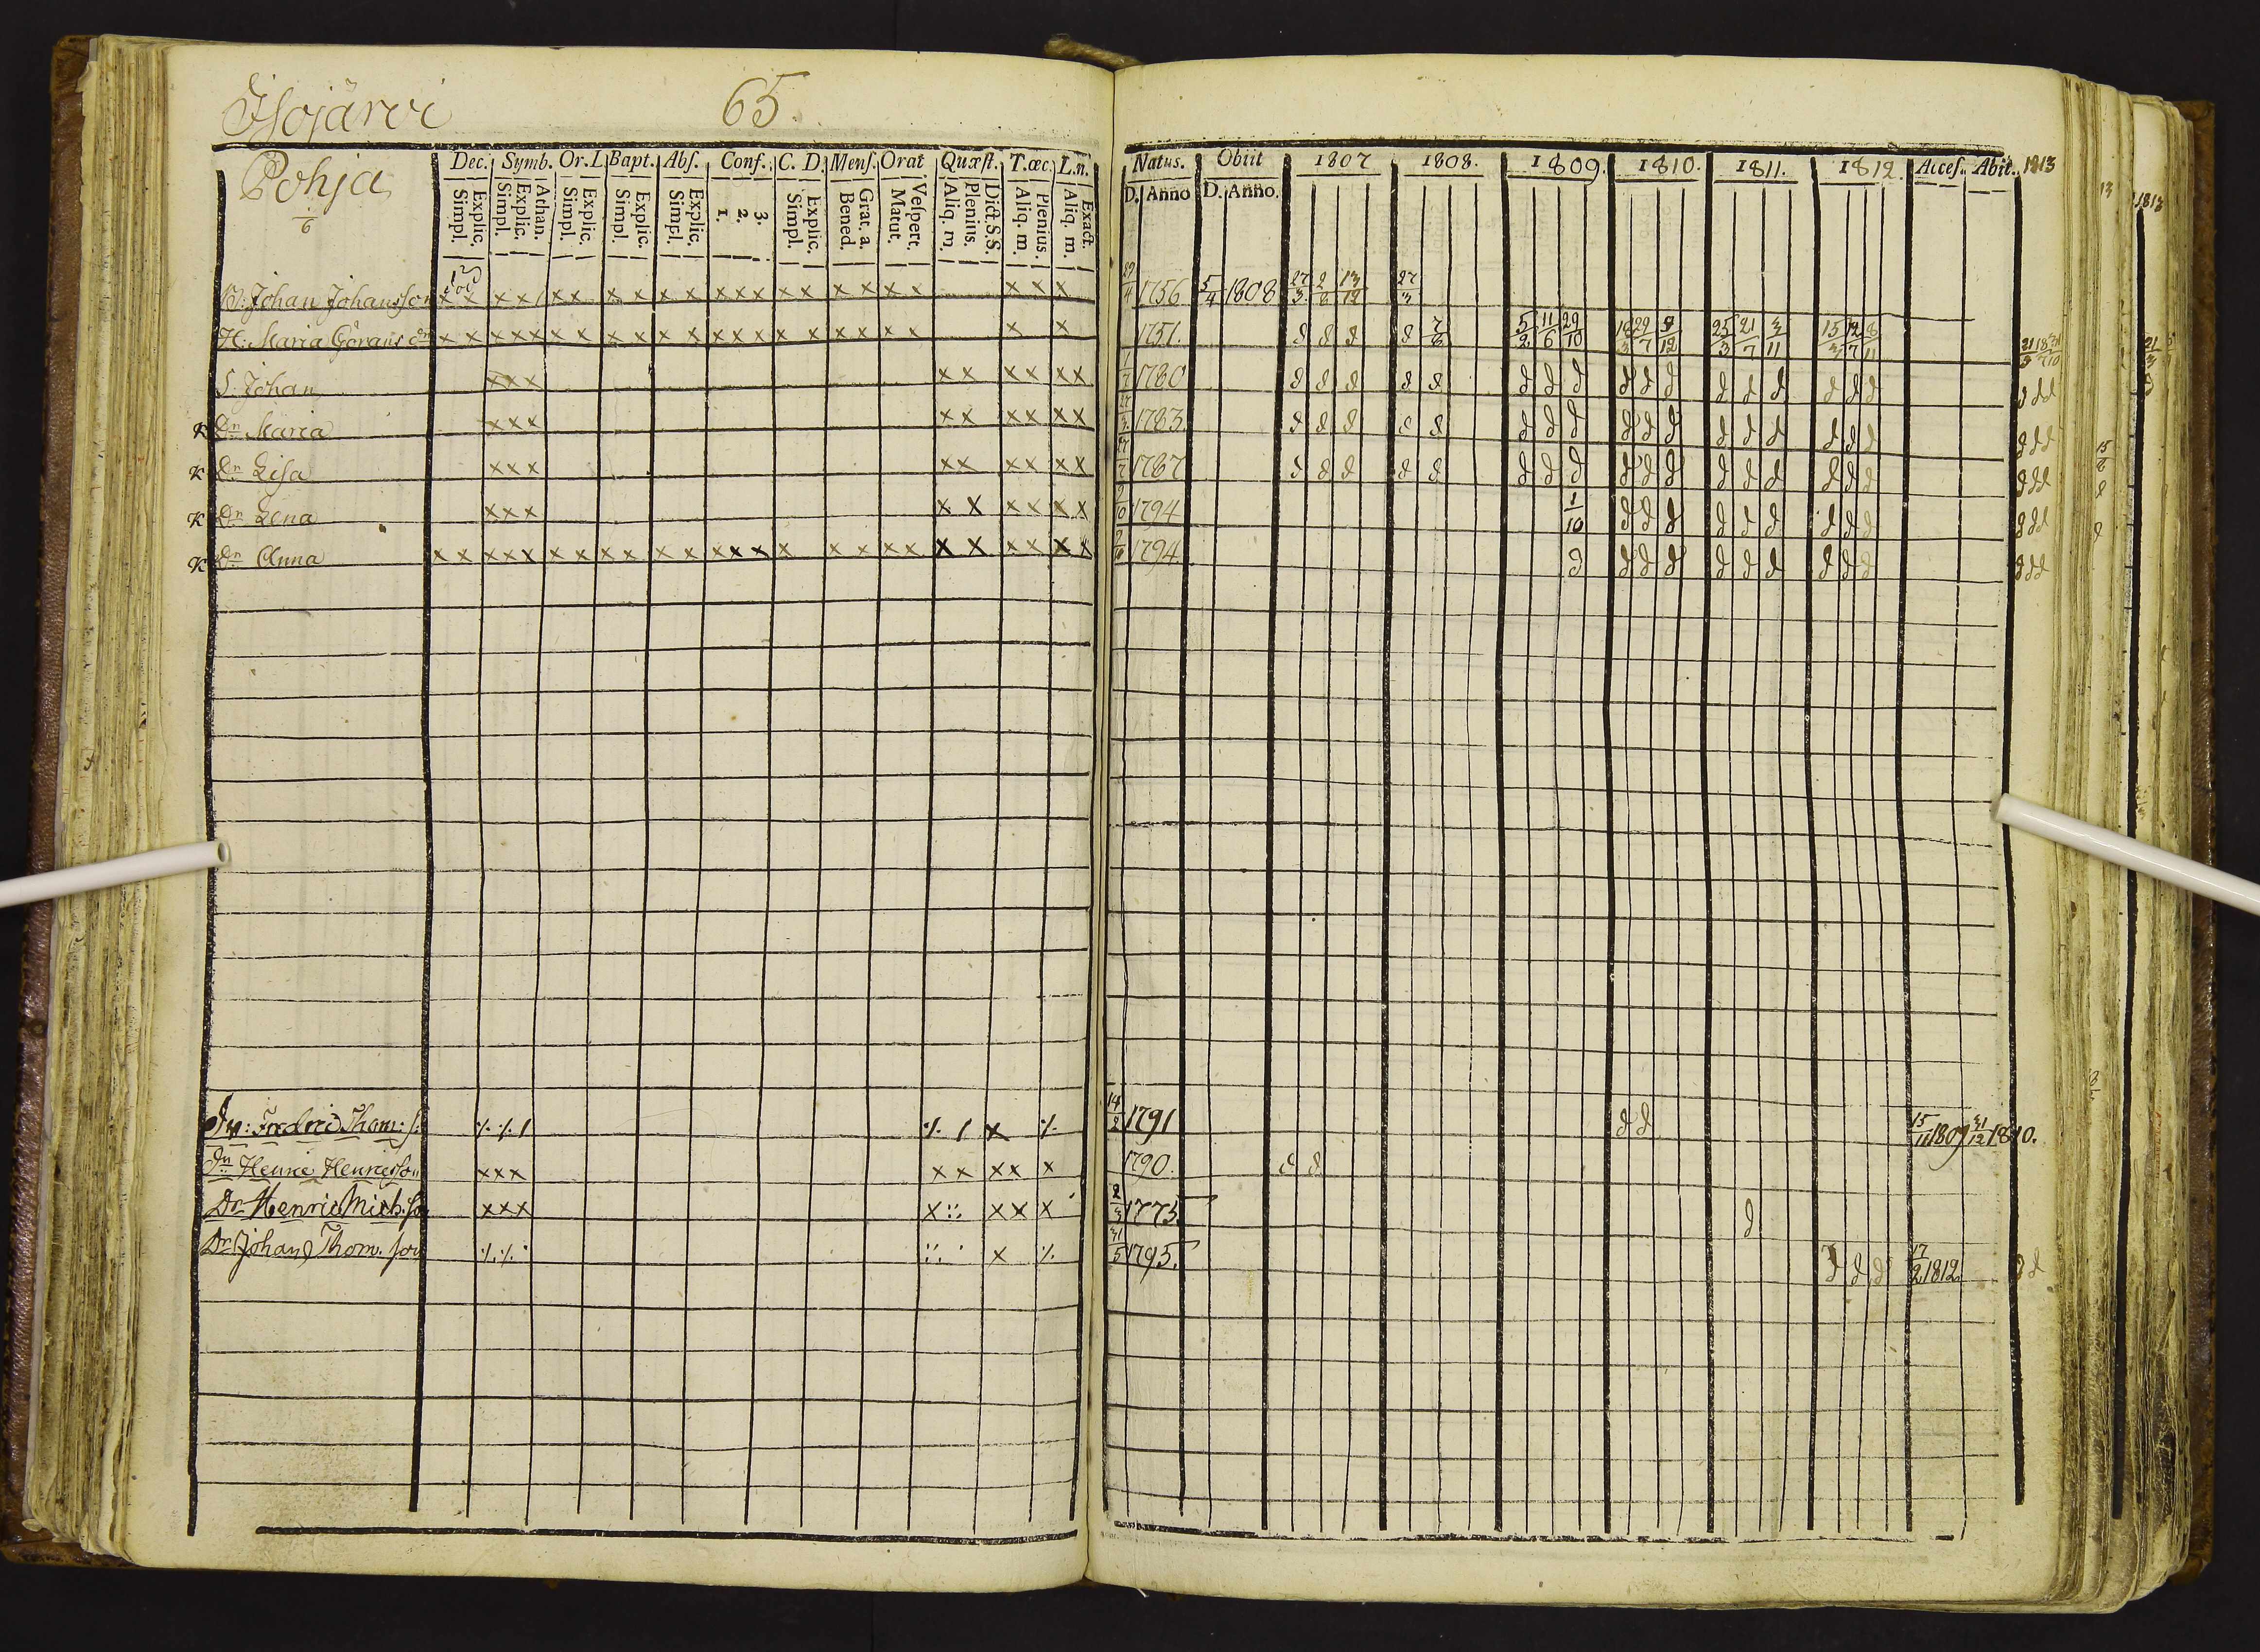 Isojärvi 65.
Pohja
6
Dec. Symb. Or. L Bapt. Abſ. Conf. C. D. Menſ. Orat Quæſt. T. œc. L. n.
Simpl. Explic. Simpl. Explic. Athan. Simpl. Explic. Simpl. Explic. Simpl. Explic. 1. 2. 3. Simpl. Explic. Bened. Grat. a. Matut. Veſpert. Aliq. m. Plenius. Dict. S.S. Aliq. m. Plenius. Aliq. m. Exact.
Natus. Obiit 1807 1808. 1809. 1810. 1811. 1812. Acceſ. Abit. 1813
D. Anno D. Anno.
B: Johan Johansson x x x x x x x x x x x x x x x x x x x x x x 29/4 1756 5/4 1808 27/3 2/8 13/12 27/3
H: Maria Görans dr x x x x x x x x x x x x x x x x x x x x x x 1751. d d d d 7/8 5/2 11/6 29/10 18/3 29/7 9/12 25/3 21/7 3/11 15/3 12/7 8/11 21/3 18/7 31/10
S: Johan x x x x x x x x x 1/7 1780 d d d d d d d d d d d d d d d d d d d d
K Dr Maria x x x x x x x x x 1783 d d d d d d d d d d d d d d d d d d d d
K Dr Lisa x x x x x x x x x 1787 d d d d d d d d d d d d d d d d d d d d
K Dr Lena x x x x x x x x x 9/10 1794 1/10 d d d d d d d d d d d d
K Dr Anna x x x x x x x x x x x x x x x x x x x x x x x x x 9/10 1794. d d d d d d d d d d d d d
Dr: Fredric Thom: s. 14/2 1791 d d 15/11 1809 31/12 1810.
Dr Henric Henricsson x x x x x x x x 1790. d d
Dr Henric Mich. so x x x x x x x 2/3 1775. d
Dr Johan Thom. son x 31/5 1795. d d d 17/2 1812 d d